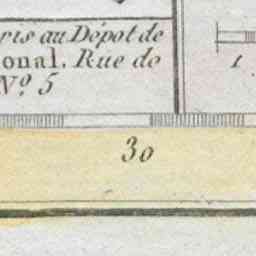 ris au Dépôt de
onal. Rue de
Nº. 5
1
30